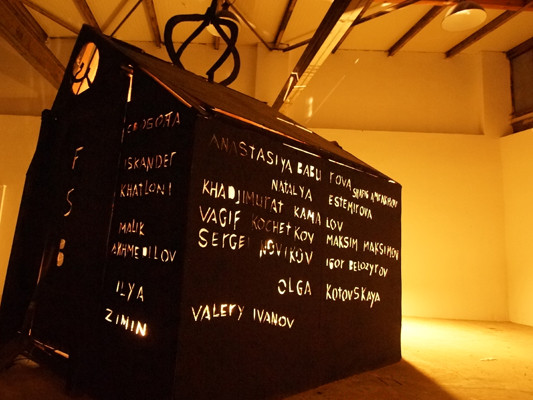 СВОБОДА
F
S
B
ISKANDER
KHATLONI
MALIK
AKHMEDILOV
ILYA
ZIMIN
ANASTASIYA BABUROVA
NATALYA
ESTEMIROVA
KHADJIMURAT KAMALOV
VAGIF KOCHETKOV
MAKSIM MAKSIMOV
SERGEI NOVIKOV
IGOR BELOZYROV
OLGA KOTOVSKAYA
VALERY IVANOV